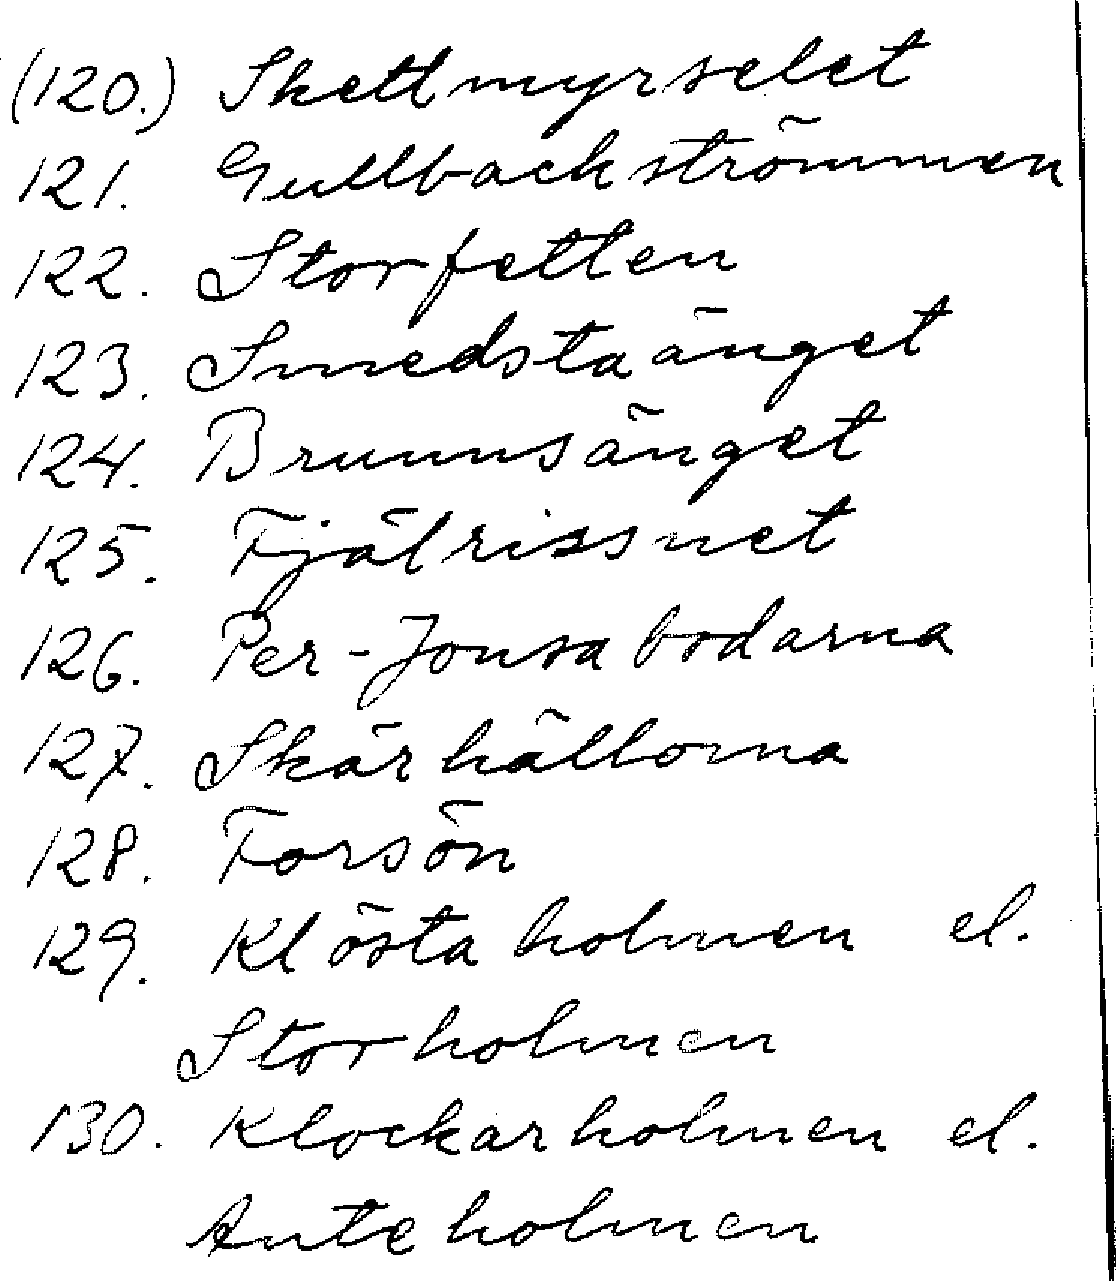 (120.) Skettmyrselet
121. Gullbackströmmen
122. Storfetten
123. Smedstaänget
124. Brunnsänget
125. Fjälrissnet
126. Per-Jonsabodarna
127. Skärhällorna
128. Forsön
129. Klöstaholmen el.
Storholmen
130. Klockarholmen el.
Anteholmen